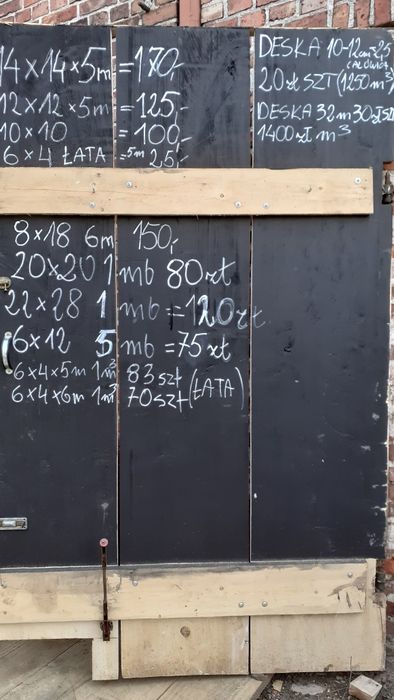 14×14×5m =170,-
12×12×5m =125,-
10×10 =100,-
6×4 ŁATA =5m 25,-
8×18 6m 150,-
20×20 1 mb 80zt
22×28 1 mb =120zt
6×12 5 mb =75zt
6×4×5m 1m³ 83szt
6×4×6m 1m³ 70szt (ŁATA)
DESKA 10-12cm
20zł SZT (1250 m³)
DESKA 32m 30zł
1400zł m³